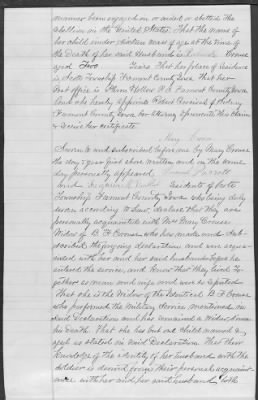 manner been engaged in or aided or abetted the
rebellion in the United States. That the name of
her child under sixteen years of age at the time of
the death of her said Husband is Crouse
aged Two Years That her place of Residence
is Scott Township Fremont County Iowa that her
Post office is Plum Hollow P.O. Fremont County Iowa
And she hereby appoints Robert Percival of Sidney
Fremont County Iowa her Attorney to prosecute this claim
& receive her certificate
Mary Crouse
Sworn to and subscribed before me by Mary Crouse
the day & year first above written and on the same
day personally appeared Parrott
and resident of Scott
Township Fremont County Iowa who being duly
sworn according to law, declare that they are
personally acquainted with Mrs Mary Crouse
Widow of B. F. Crouse who has made and Sub-
scribed the foregoing declaration and were acquain-
ted with her and her said husband before he
entered the service, and know that they lived to-
gether as man and wife and were so reputed
That she is the Widow of the Identical B F Crouse
who performed the military service mentioned in
said Declaration and has remained a Widow since
his Death. That she has but one child named &
aged as stated in said Declaration. That their
knowledge of the identity of her husband with the
soldier is derived from their personal acquaint-
ance with her and her said husband